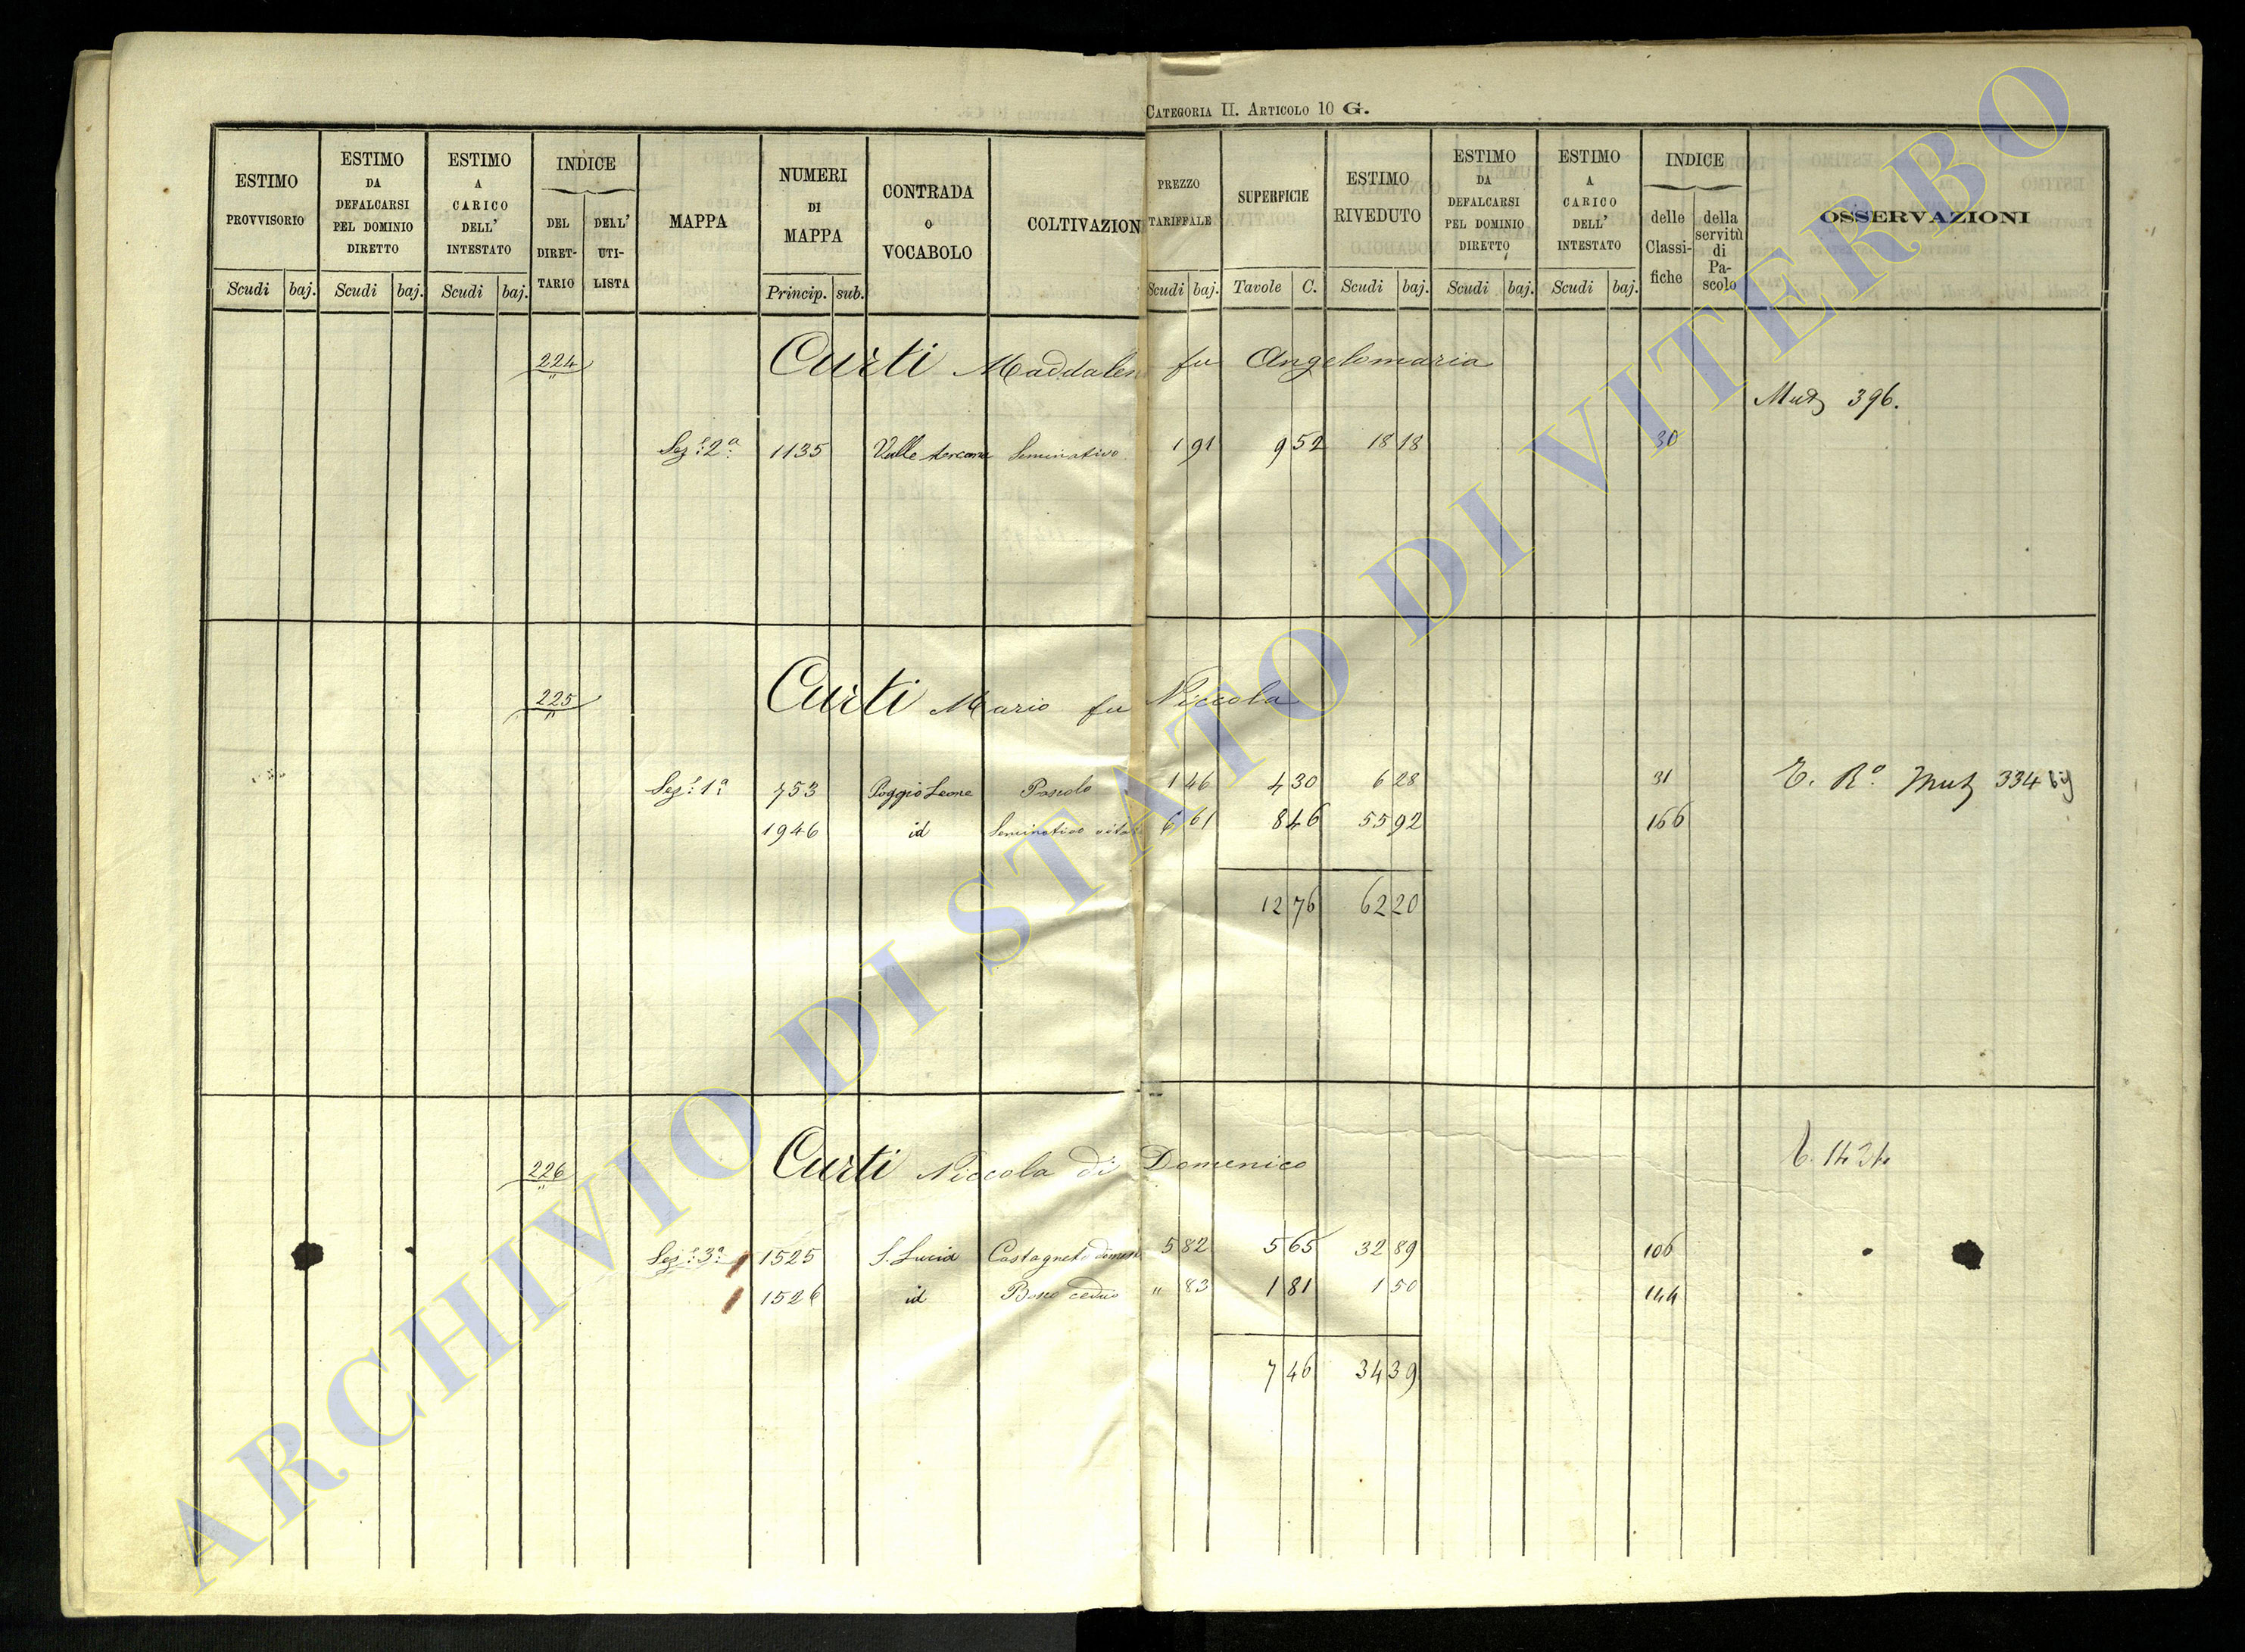 CATEGORIA II. ARTICOLO 10 G.
ESTIMO PROVVISORIO Scudi baj.
ESTIMO DA DEFALCARSI PEL DOMINIO DIRETTO Scudi baj.
ESTIMO A CARICO DELL' INTESTATO Scudi baj.
INDICE DEL DIRET- TARIO DELL' UTI- LISTA
MAPPA
NUMERI DI MAPPA Princip. sub.
CONTRADA o VOCABOLO
COLTIVAZION
PREZZO TARIFFALE Scudi baj.
SUPERFICIE Tavole C.
ESTIMO RIVEDUTO Scudi baj.
ESTIMO DA DEFALCARSI PEL DOMINIO DIRETTO Scudi baj.
ESTIMO A CARICO DELL' INTESTATO Scudi baj.
INDICE delle Classi- fiche della servitù di Pa- scolo
OSSERVAZIONI
224 Curti Maddalen fu Angelomaria
Mutz 396.
Sez.e 2a 1135 Valle Seminativo 1 91 9 52 18 18 30
225 Curti Mario fu Niccola
Sez.e 1a 753 Poggio Leone Pascolo 1 46 4 30 6 28 31 Mutz 334
1946 id Seminativo vitat 6 61 8 46 55 92 166
12 76 62 20
226 Curti Niccola di Domenico
Sez.e 3a 1525 S. Lucia Castagneto domest 5 82 5 65 32 89 106
1526 id Bosco ceduo " 83 1 81 1 50 144
7 46 34 39
ARCHIVIO DI STATO DI VITERBO